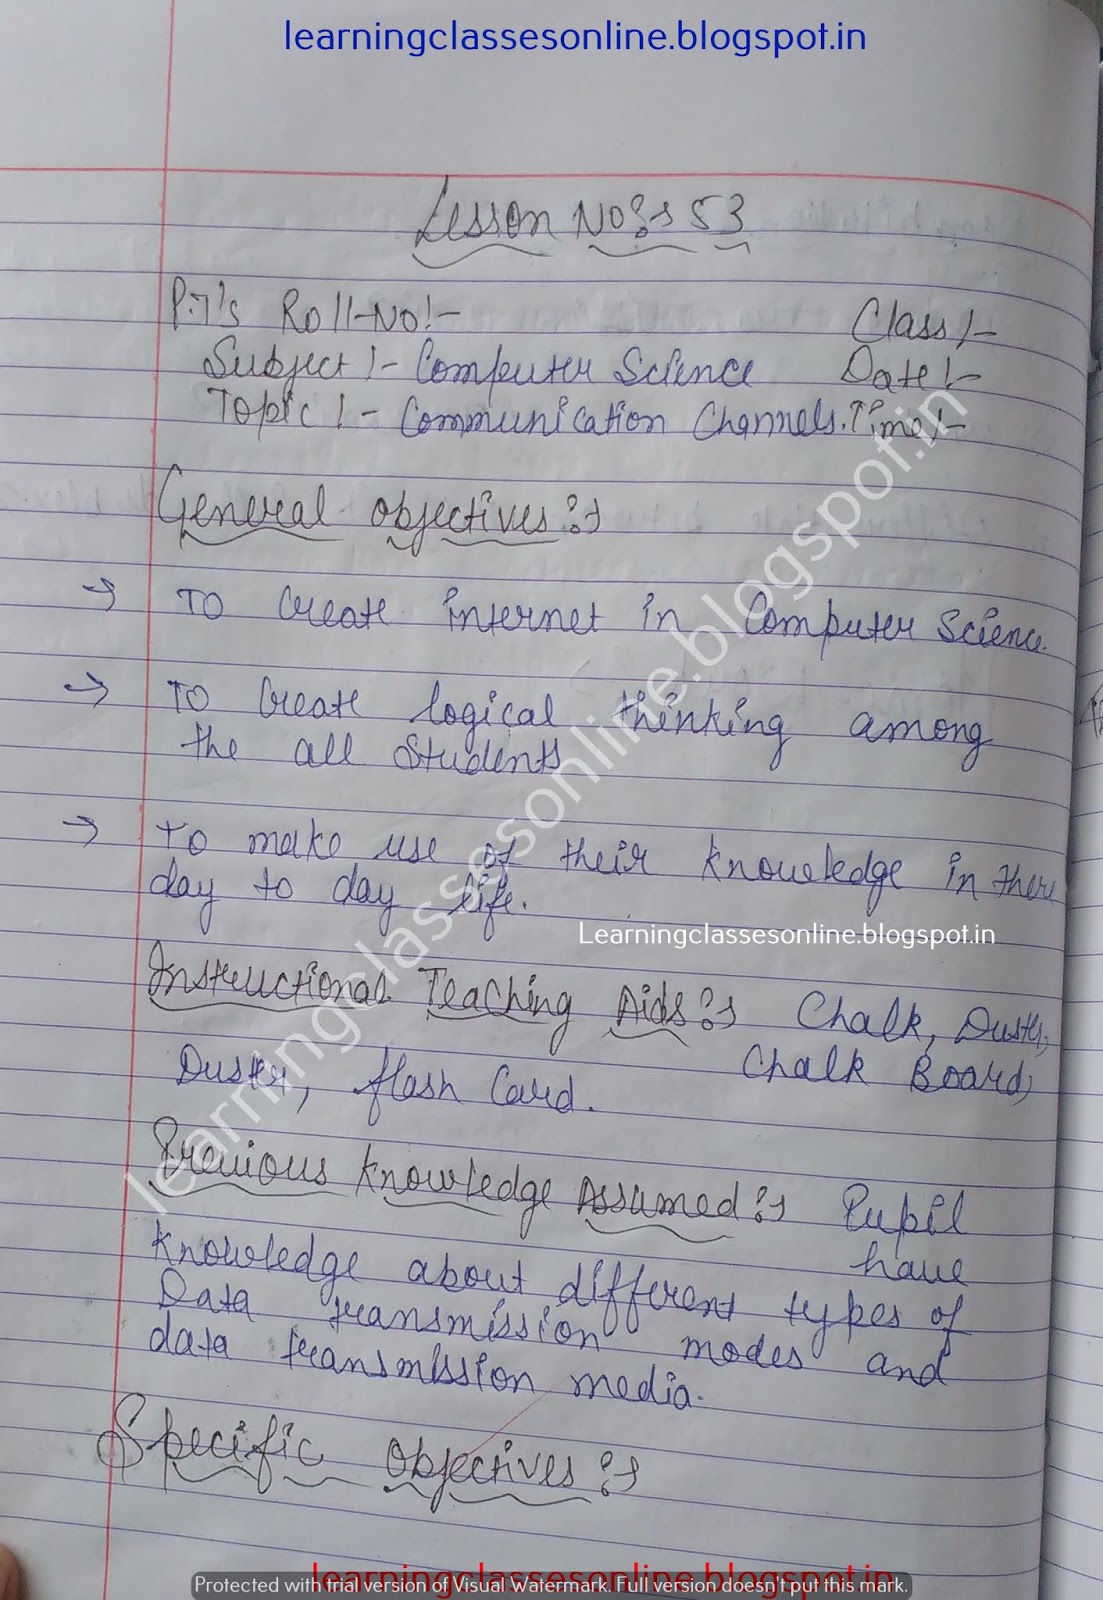 learningclassesonline.blogspot.in
Lesson No:- 53
P.T's Roll-No:- Class:-
Subject:- Computer Science Date:-
Topic:- Communication Channels. Time:-
General objectives:-
→ To create internet in Computer Science.
→ To create logical thinking among
the all students
→ To make use of their knowledge in there
day to day life.
Learningclassesonline.blogspot.in
Instructional Teaching Aids:- Chalk, Duster,
Chalk Board,
Duster, flash Card.
Previous knowledge Assumed:- Pupil
have
knowledge about different types of
Data transmission modes and
data transmission media.
Specific objectives:-
learningclassesonline.blogspot.in
learningclassesonline.blogspot.in
Protected with trial version of Visual Watermark. Full version doesn't put this mark.